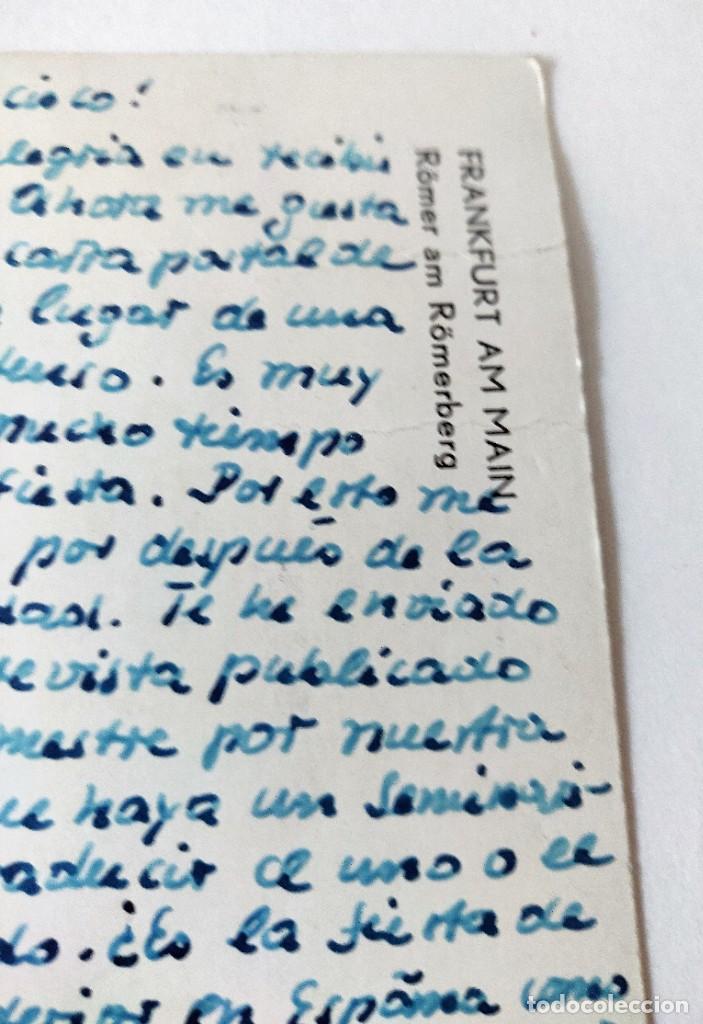 cisco!
alegria en recibir
Ahora me gusta
carta postal de
lugar de una
Es muy
mucho tiempo
fiesta. Por esto me
por después de la
Te he enviado
revista publicado
mestre por nuestra
ue haya un seminari-
aducir el uno o el
do. ¿Es la fiesta de
en España como
FRANKFURT AM MAIN
Römer am Römerberg
todocoleccion